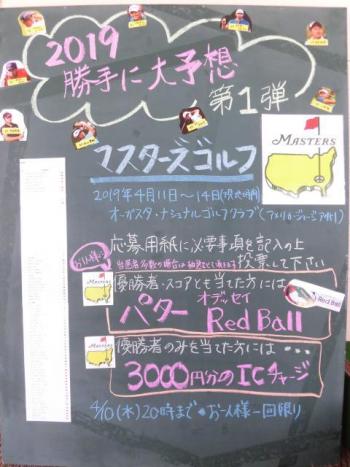 2019
勝手に大予想
第1弾
マスターズゴルフ
MASTERS
2019年4月11日～14日(現地時間)
オーガスタ・ナショナルゴルフクラブ(アメリカ・ジョージア州)
応募用紙に必要事項を記入の上
投票して下さい
優勝者・スコアとも当てた方には
オデッセイ
パター Red Ball
Red Ball
MASTERS
優勝者のみを当てた方には・・・
3000円分のICチャージ
MASTERS
4/10(水)20時まで お一人様一回限り